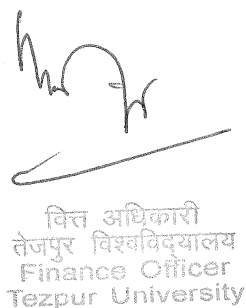 वित्त अधिकारी
तेजपुर विश्वविद्यालय
Finance Officer
Tezpur University